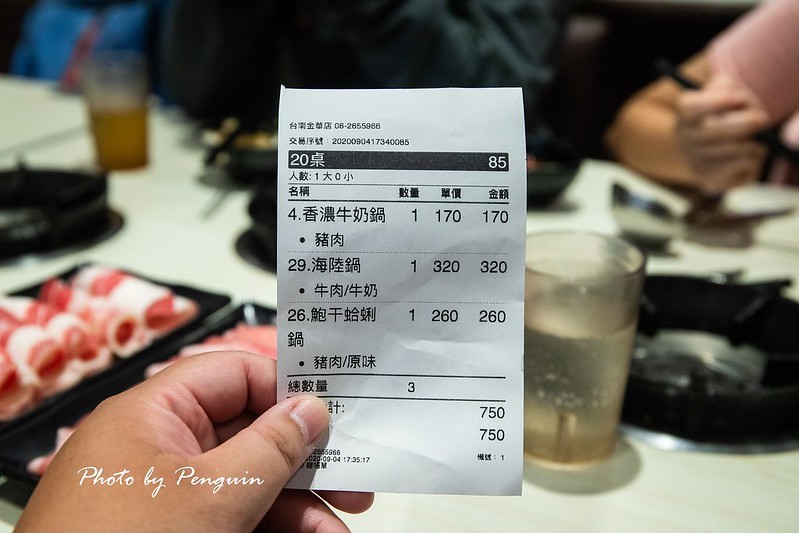 台南金華店 06-2655966
交易序號：2020090417340085
20桌 85
人數: 1 大 0 小
名稱 數量 單價 金額
4.香濃牛奶鍋 1 170 170
• 豬肉
29.海陸鍋 1 320 320
• 牛肉/牛奶
26.鮑干蛤蜊 1 260 260
鍋
• 豬肉/原味
總數量 3
計: 750
750
2655966
2020-09-04 17:35:17 機號： 1
Photo by Penguin